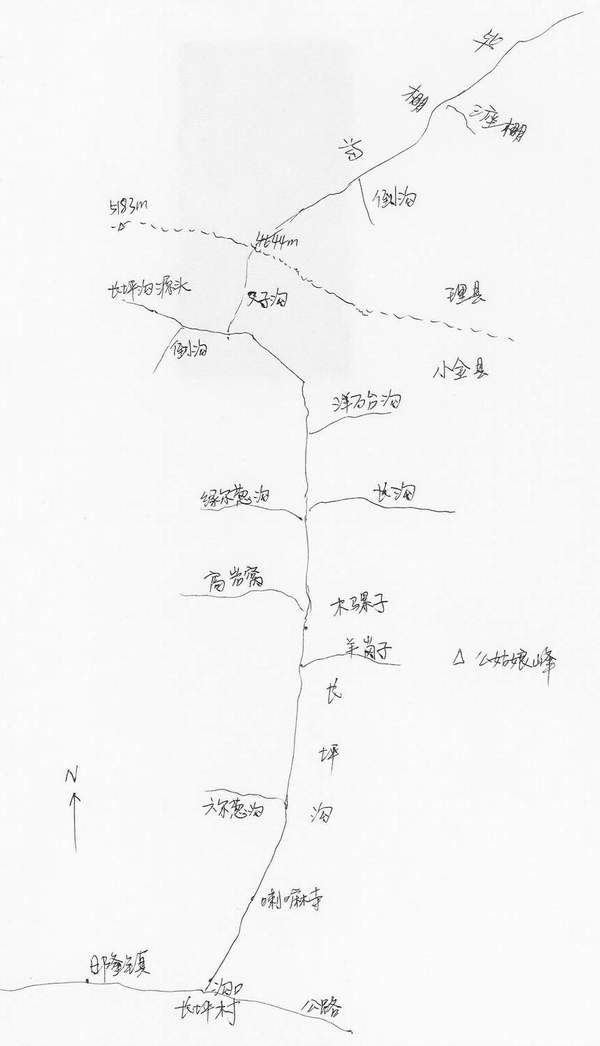 毕
棚
沟
三座棚
倒沟
5183m
4644m
长坪沟源头
叉子沟
理县
倒沟
小金县
洋石台沟
绿尔葱沟
长沟
高岩窝
木骡子
羊岗子
幺姑娘峰
长
坪
沟
N
六尔葱沟
喇嘛寺
日隆镇
沟口
长坪村
公路